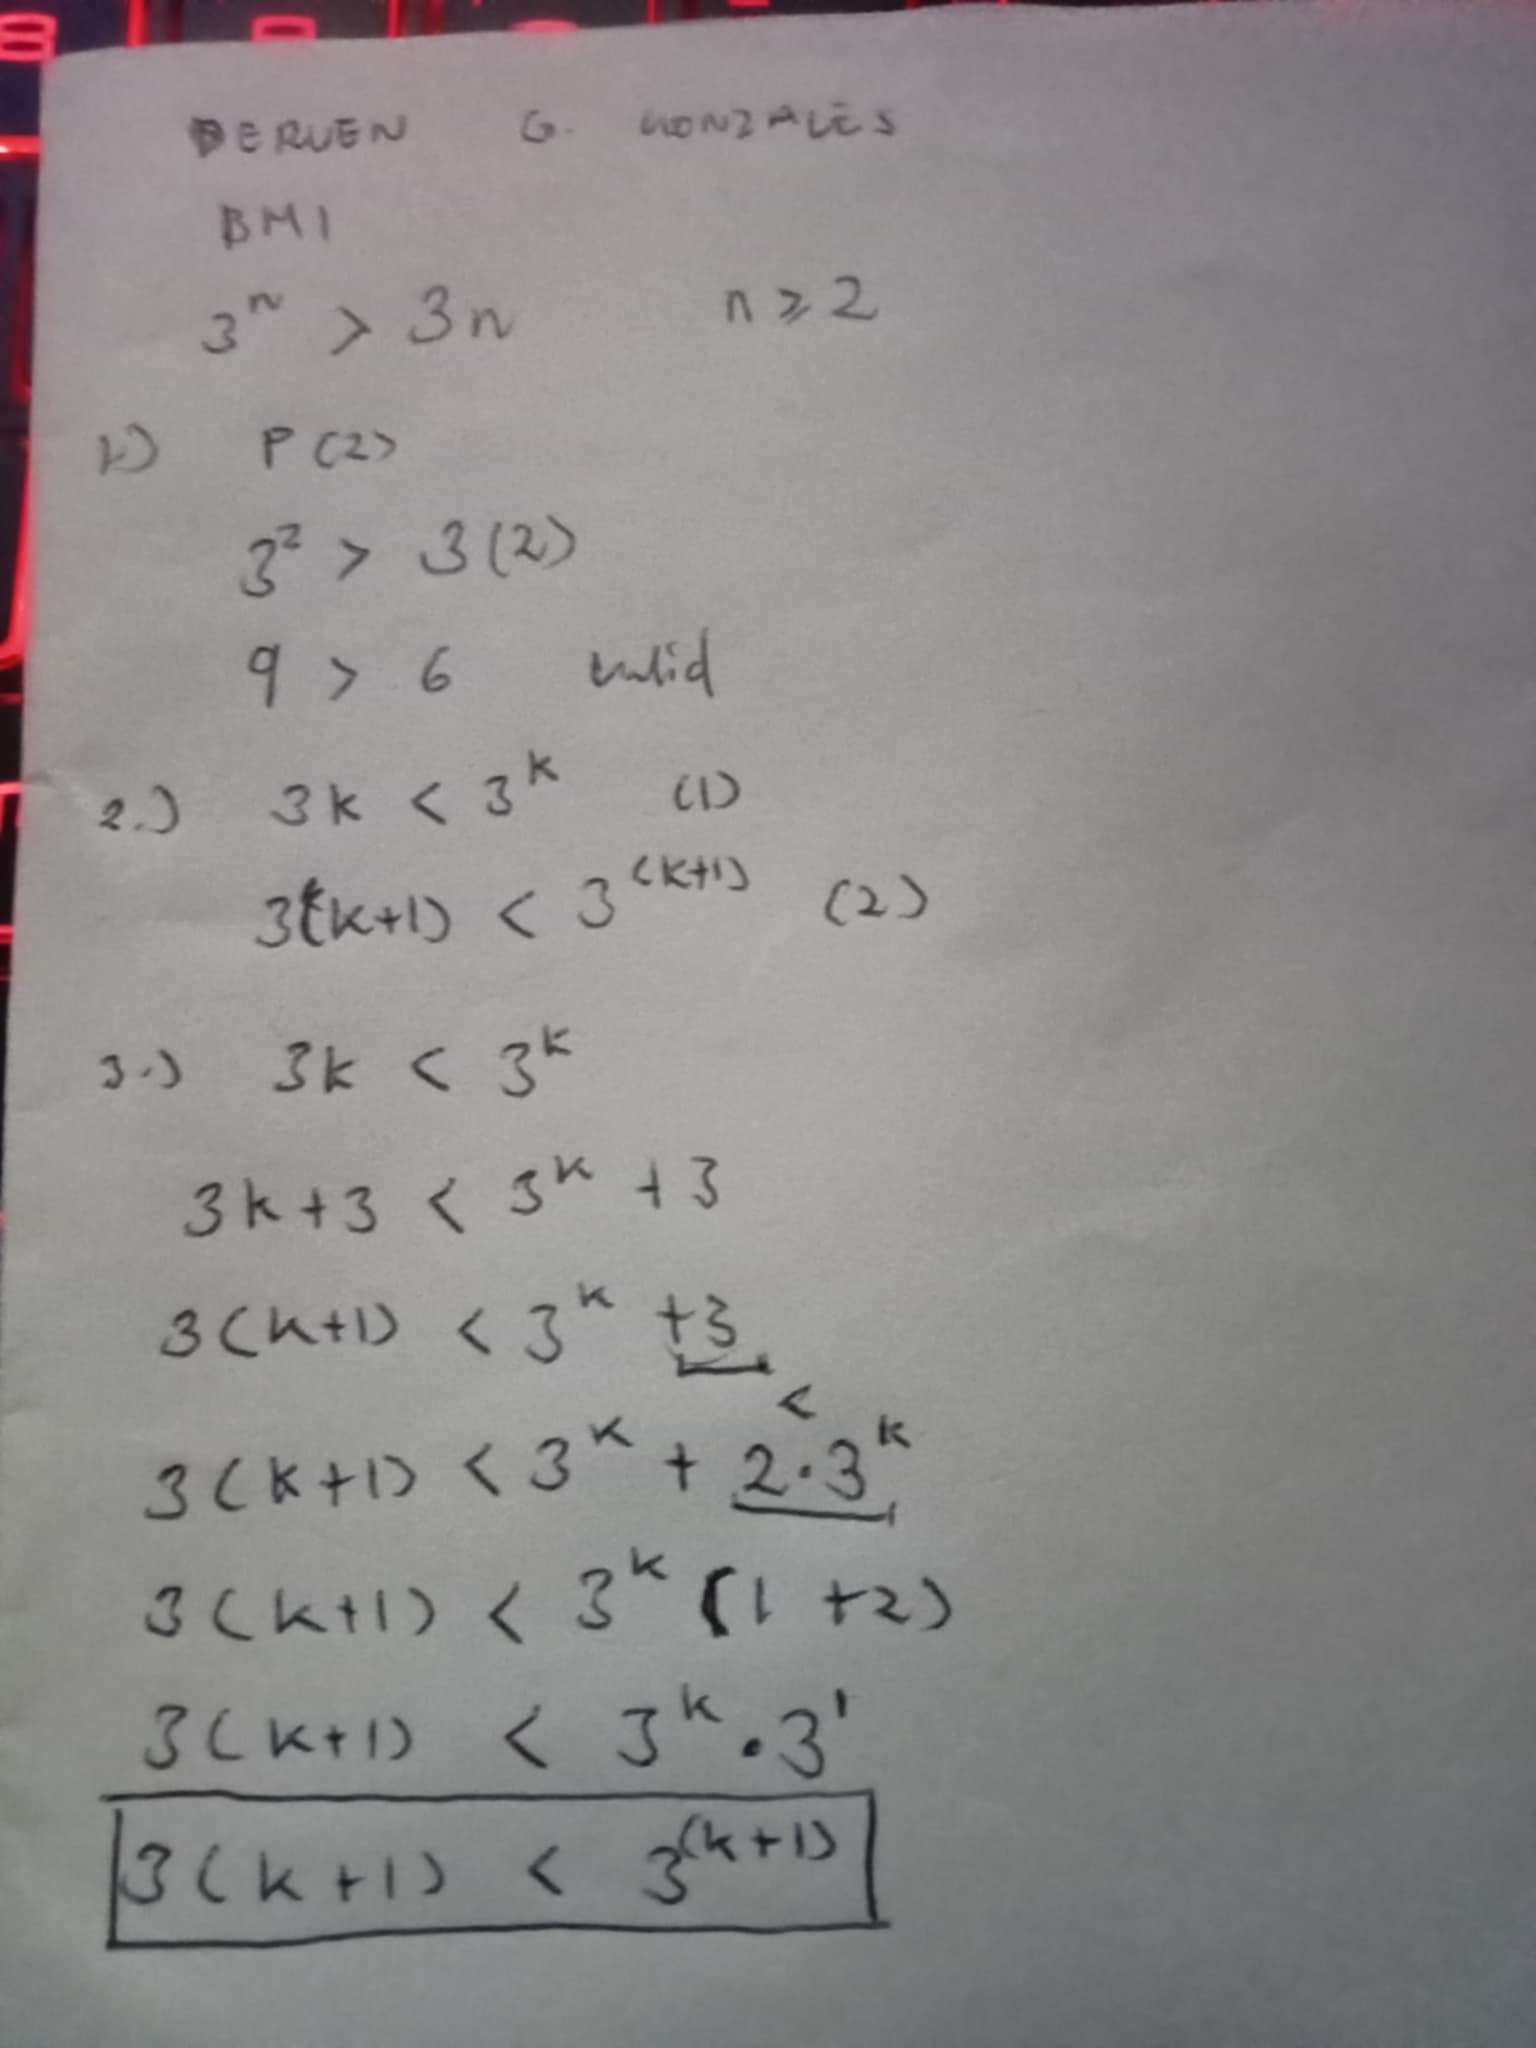 DERVEN G. GONZALES
BM1
3ⁿ > 3n n ≥ 2
1.) P(2)
3² > 3(2)
9 > 6 valid
2.) 3k < 3ᵏ (1)
3(k+1) < 3⁽ᵏ⁺¹⁾ (2)
3.) 3k < 3ᵏ
3k+3 < 3ᵏ + 3
3(k+1) < 3ᵏ +3
<
3(k+1) < 3ᵏ + 2·3ᵏ
3(k+1) < 3ᵏ (1 +2)
3(k+1) < 3ᵏ · 3¹
3(k+1) < 3⁽ᵏ⁺¹⁾